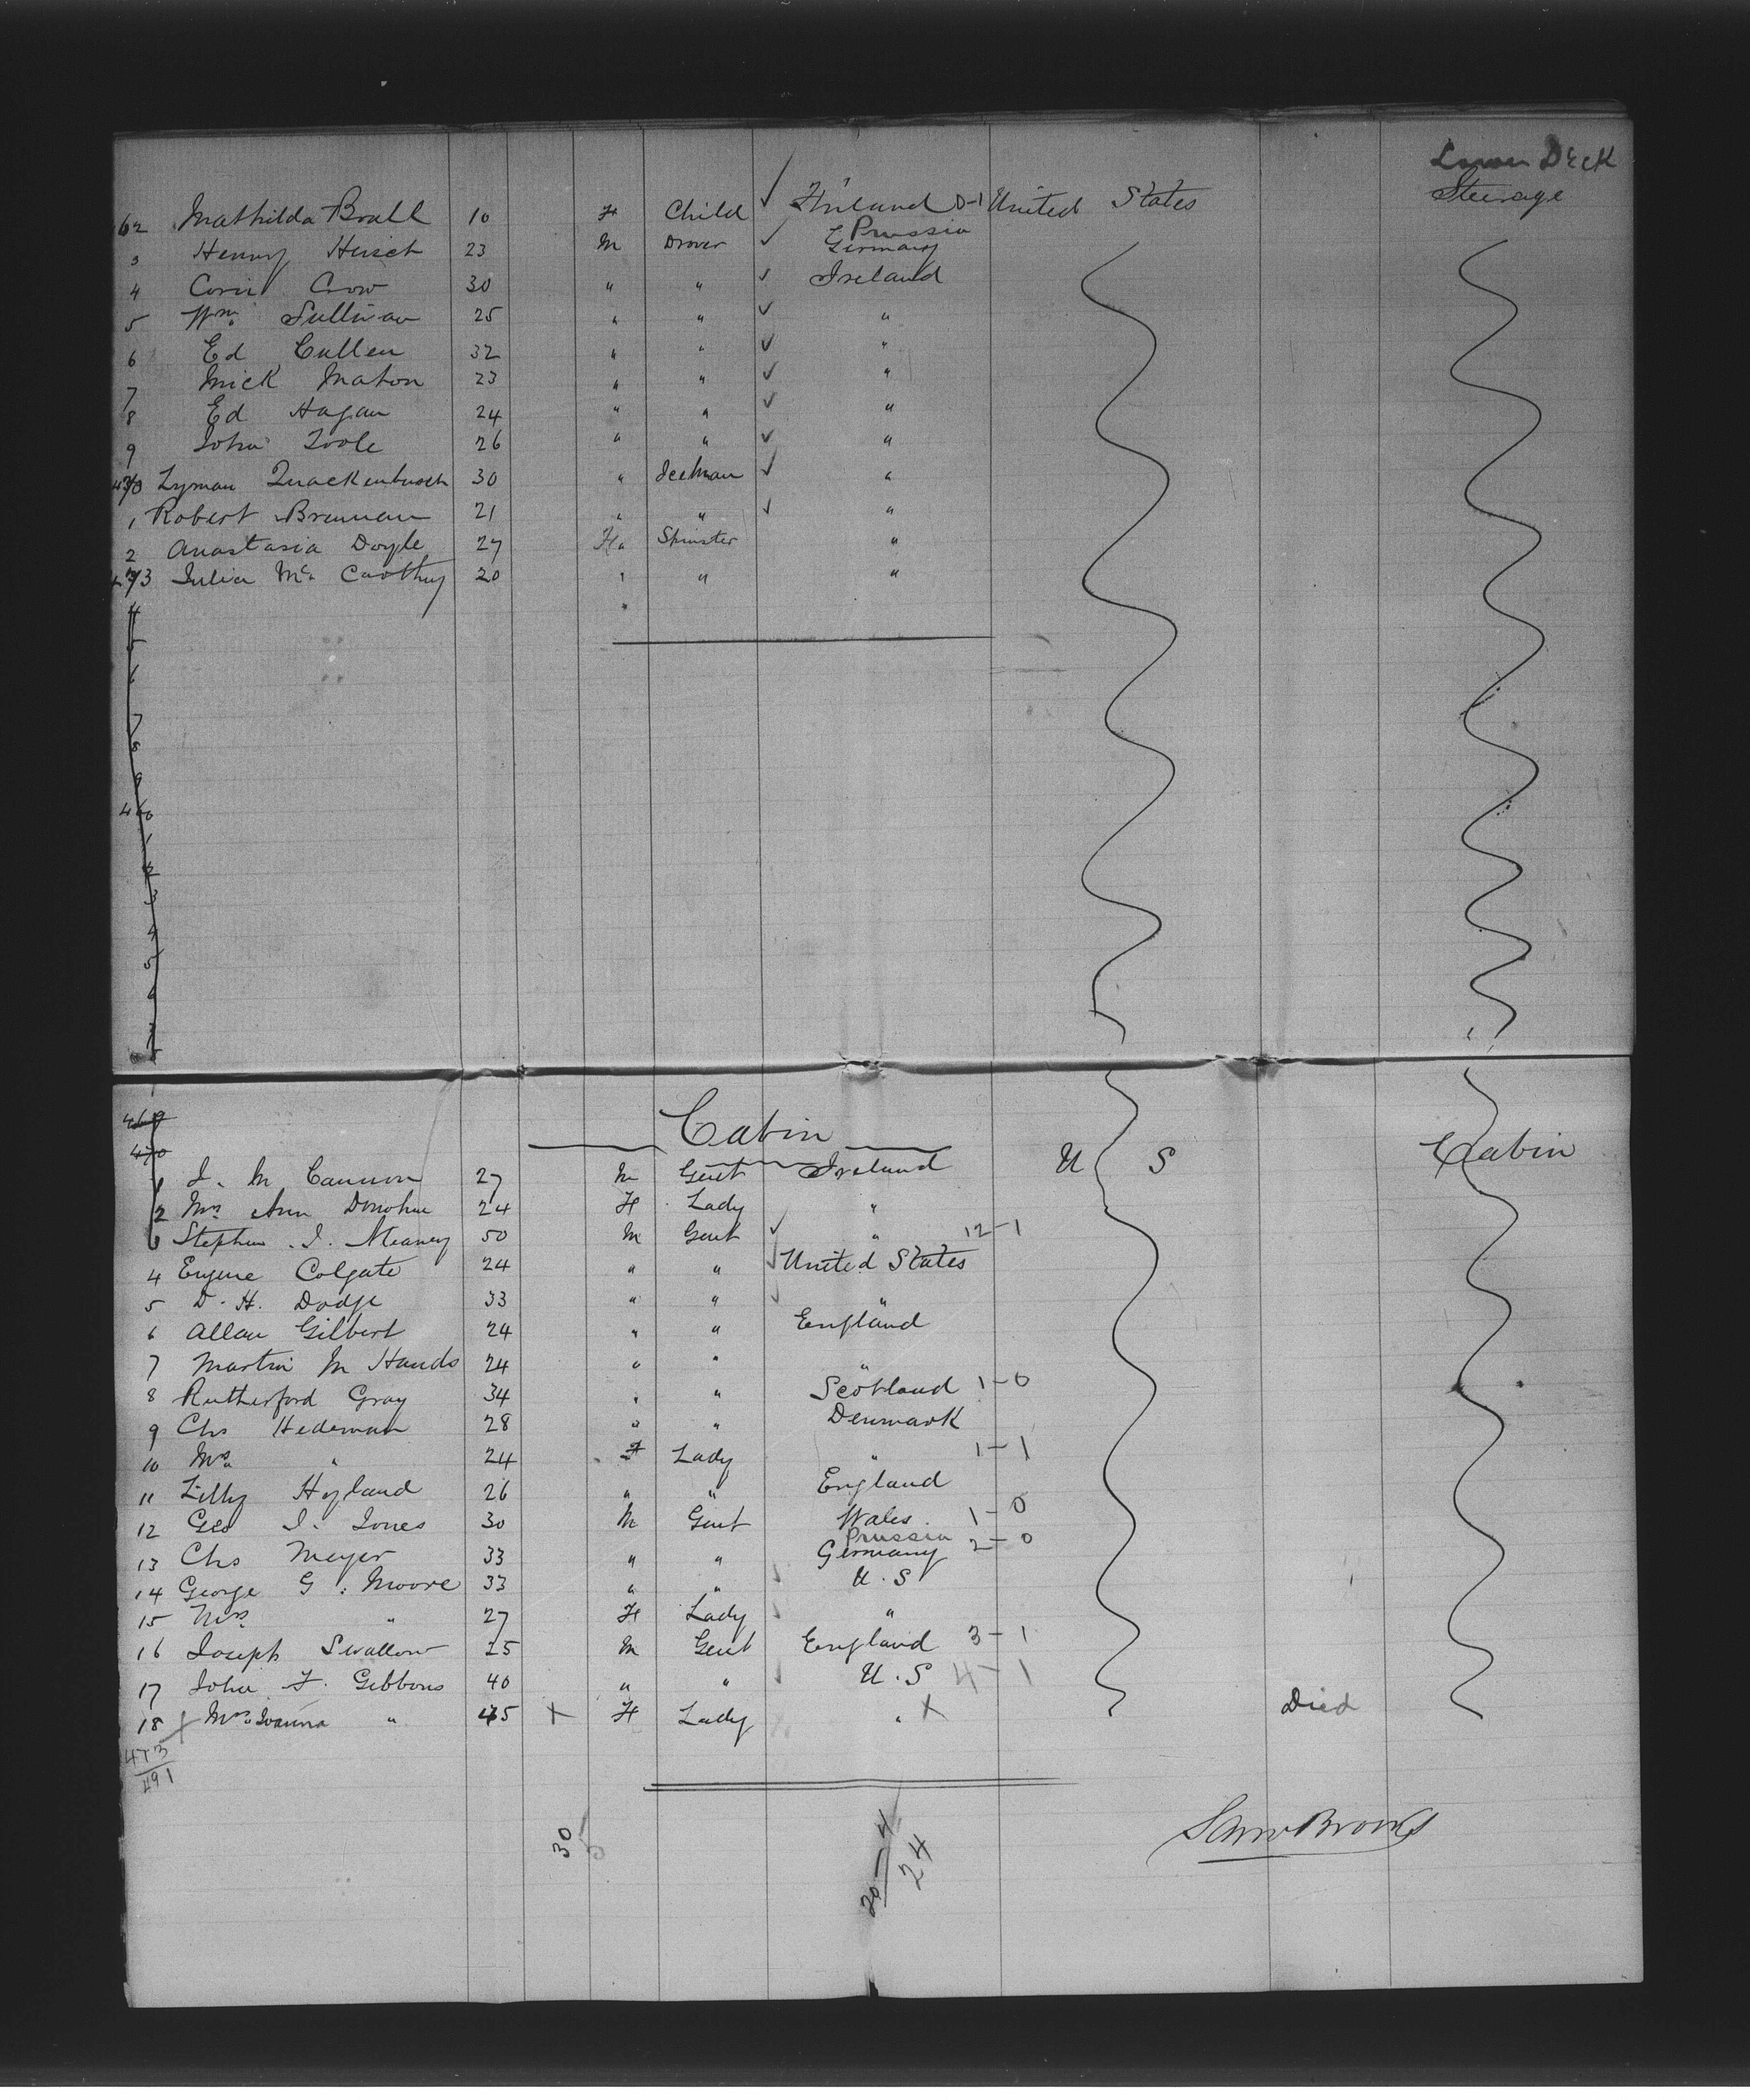 Lower Deck
Steerage
62 Mathilda Brall 10 F Child ✓ Finland 0-1 United States
3 Henry Hirsch 23 M Drover ✓ Prussia Germany
4 Corn Crow 30 " " ✓ Ireland
5 Wm. Sullivan 25 " " ✓ "
6 Ed Cullen 32 " " ✓ "
7 Mick Mahon 23 " " ✓ "
8 Ed Hagan 24 " " ✓ "
9 John Toole 26 " " ✓ "
Lyman Quackenbush 30 " Iceman ✓ "
1 Robert Brennan 21 " " ✓ "
2 Anastasia Doyle 27 F " Spinster "
473 Julia Mc Carthy 20 " " "
4
5
6
7
8
9
460
1
2
3
4
5
6
7
8
469
470
Cabin
1 J. M Cannon 27 M Gent Ireland U S Cabin
2 Mrs Ann Donohue 24 F Lady "
3 Stephen J. Meaney 50 M Gent ✓ " 12-1
4 Eugene Colgate 24 " " ✓ United States
5 D. H. Dodge 33 " " ✓ "
6 Allan Gilbert 24 " " England
7 Martin M Hands 24 " " "
8 Rutherford Gray 34 " " Scotland 1-0
9 Chs Hedeman 28 " " Denmark
10 Mrs " 24 F Lady " 1-1
11 Lilly Hyland 26 " " England
12 Geo J. Jones 30 M Gent Wales 1-0
13 Chs Meyer 33 " " Prussia Germany 2-0
14 George G. Moore 33 " " ✓ U.S
15 Mrs " 27 F Lady ✓ "
16 Joseph Swallow 25 M Gent England 3-1
17 John F. Gibbons 40 " " ✓ U.S 4-1
18 X Mrs Joanna " 45 X F Lady " X Died
473
491
30
5
20-4
24